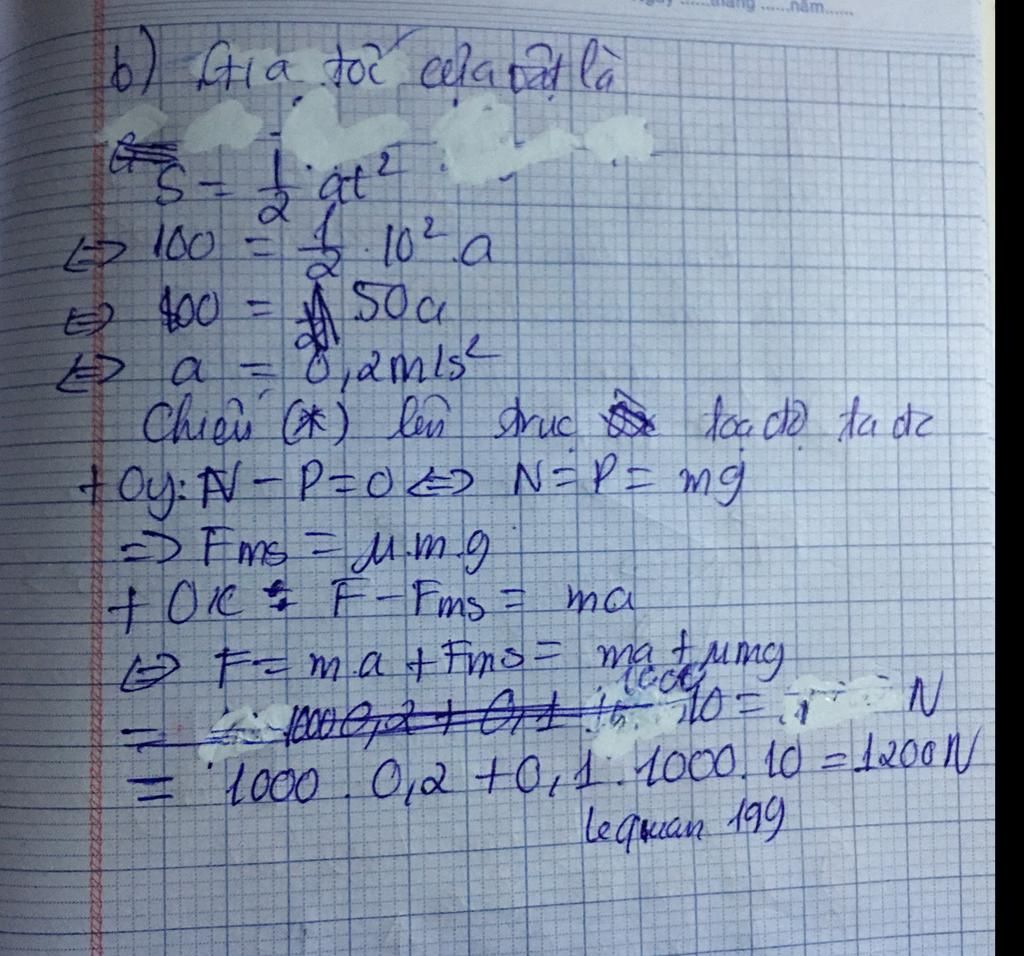 ......tháng ......năm......
b) Gia tốc của vật là
S = 1/2 at²
⇔ 100 = 1/2 . 10² . a
⇔ 100 = 50a
⇔ a = 0,2m/s²
Chiếu (*) lên trục toạ độ ta đc
+ Oy: N - P = 0 ⇔ N = P = mg
=> Fms = μ.m.g
+ Ox : F - Fms = ma
⇔ F = m.a + Fms = ma + μmg
= 1000 0,2 + 0,1 1000 10 = N
= 1000 . 0,2 + 0,1 . 1000 . 10 = 1200N
lequan 199